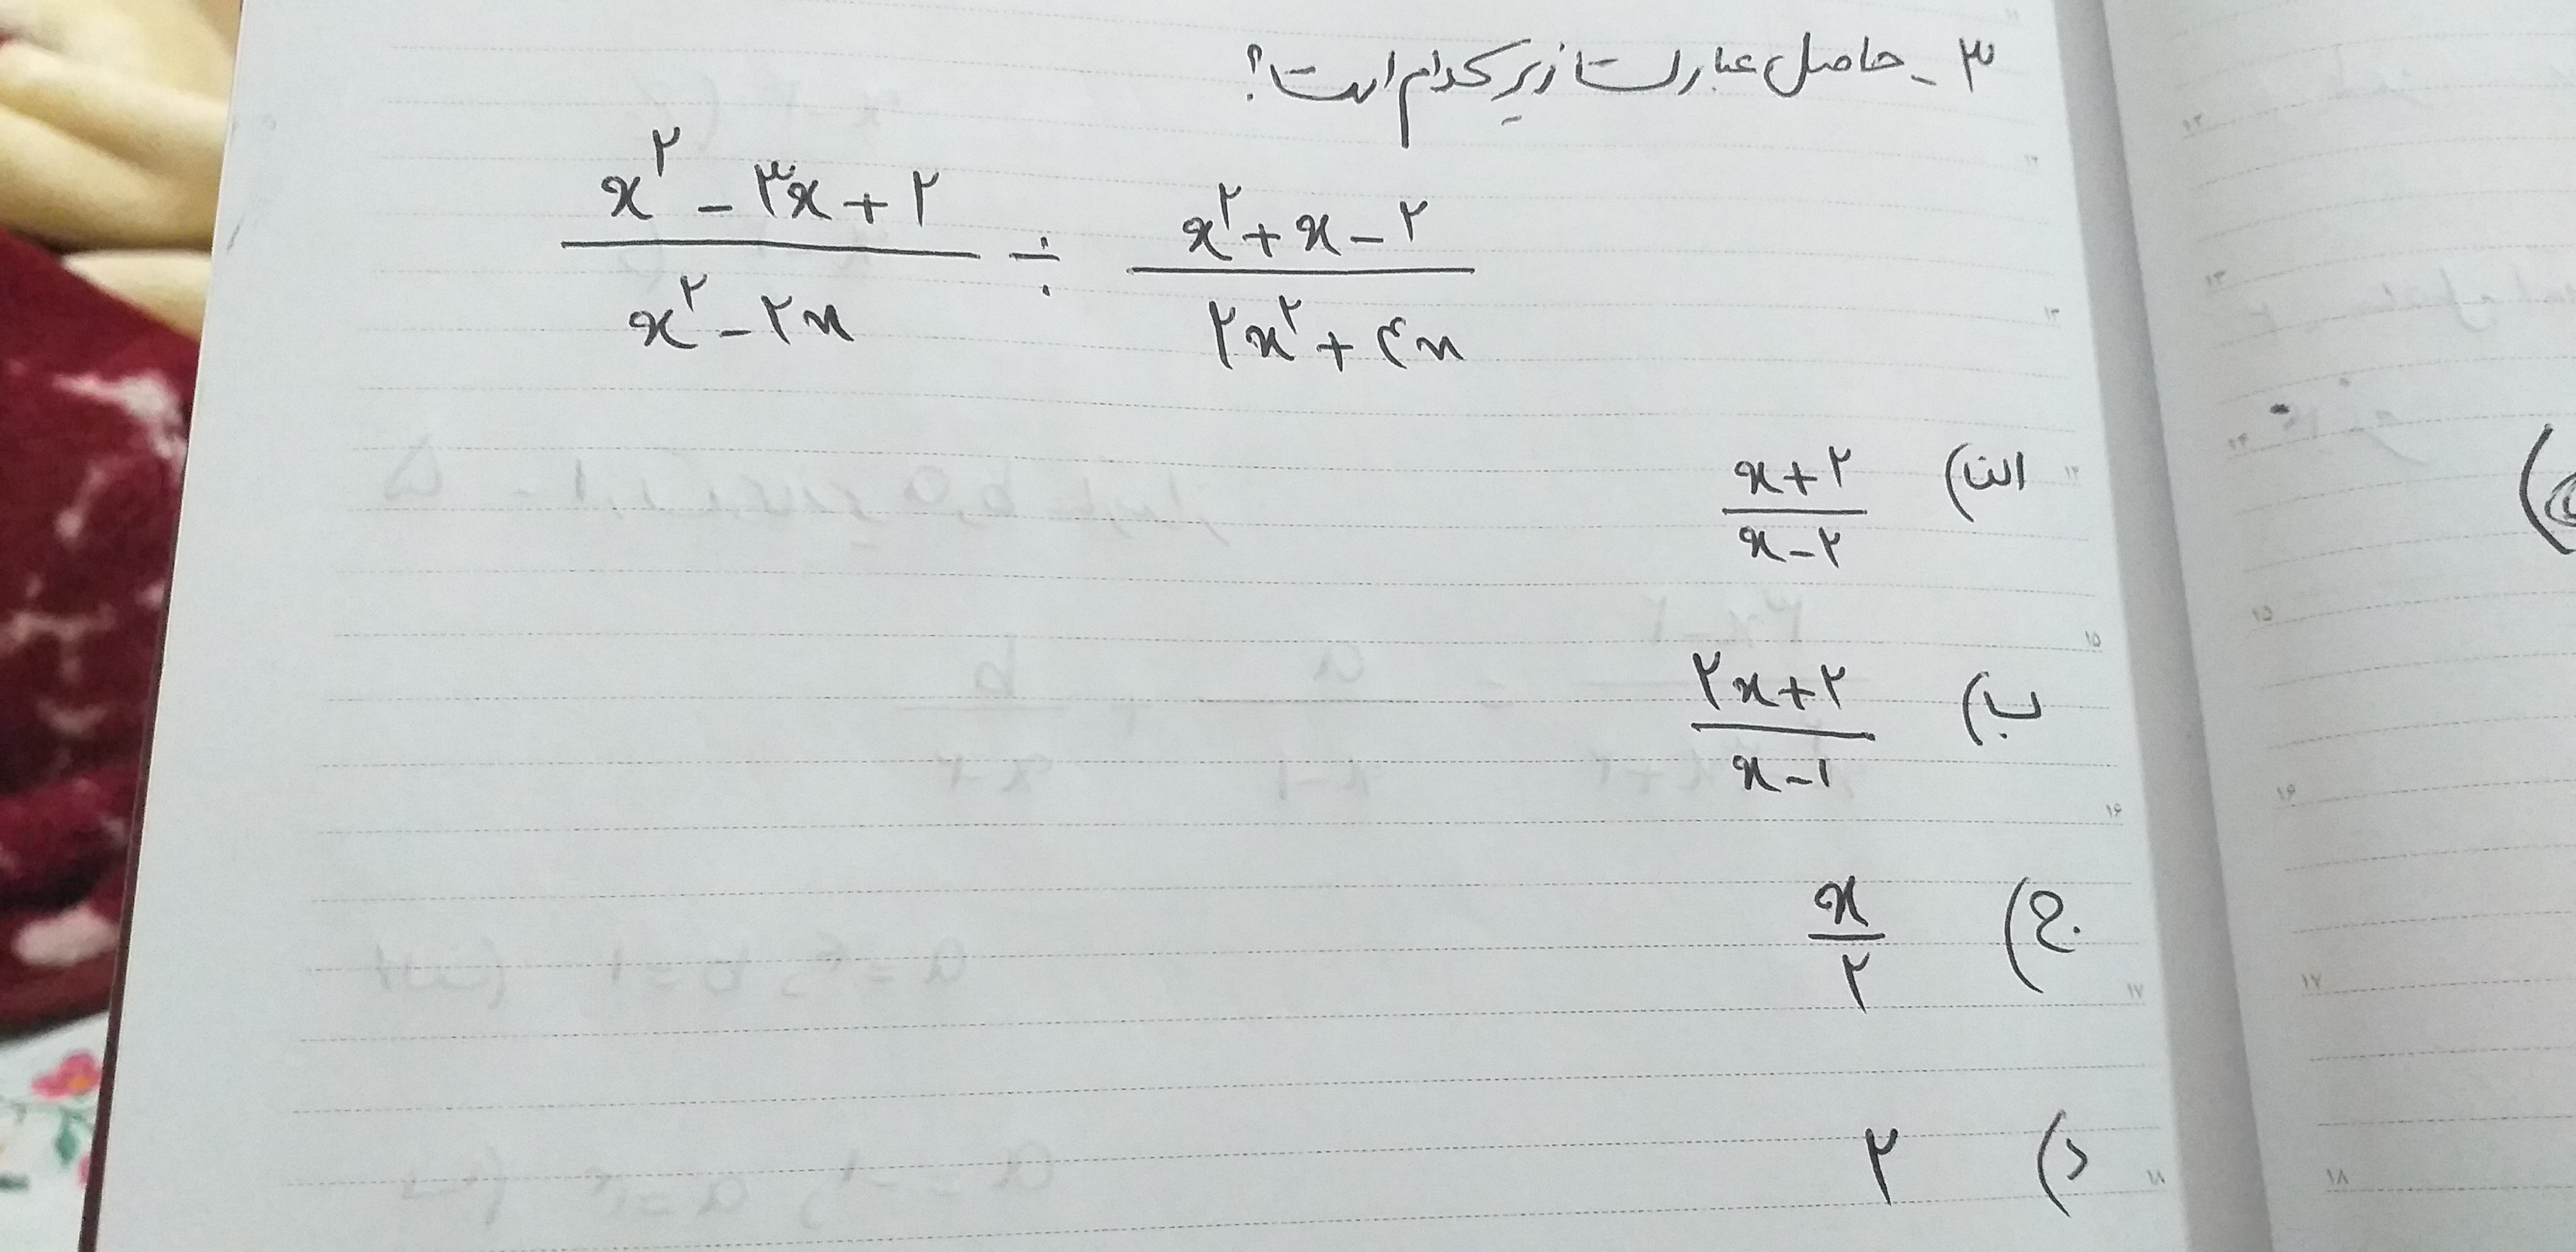 ۳ - حاصل عبارت زیر کدام است؟
(x^۲ - ۳x + ۲)/(x^۲ - ۲x) ÷ (x^۲ + x - ۲)/(۲x^۲ + ۴x)
الف) (x+۲)/(x-۲)
ب) (۲x+۲)/(x-۱)
ج) x/۲
د) ۲